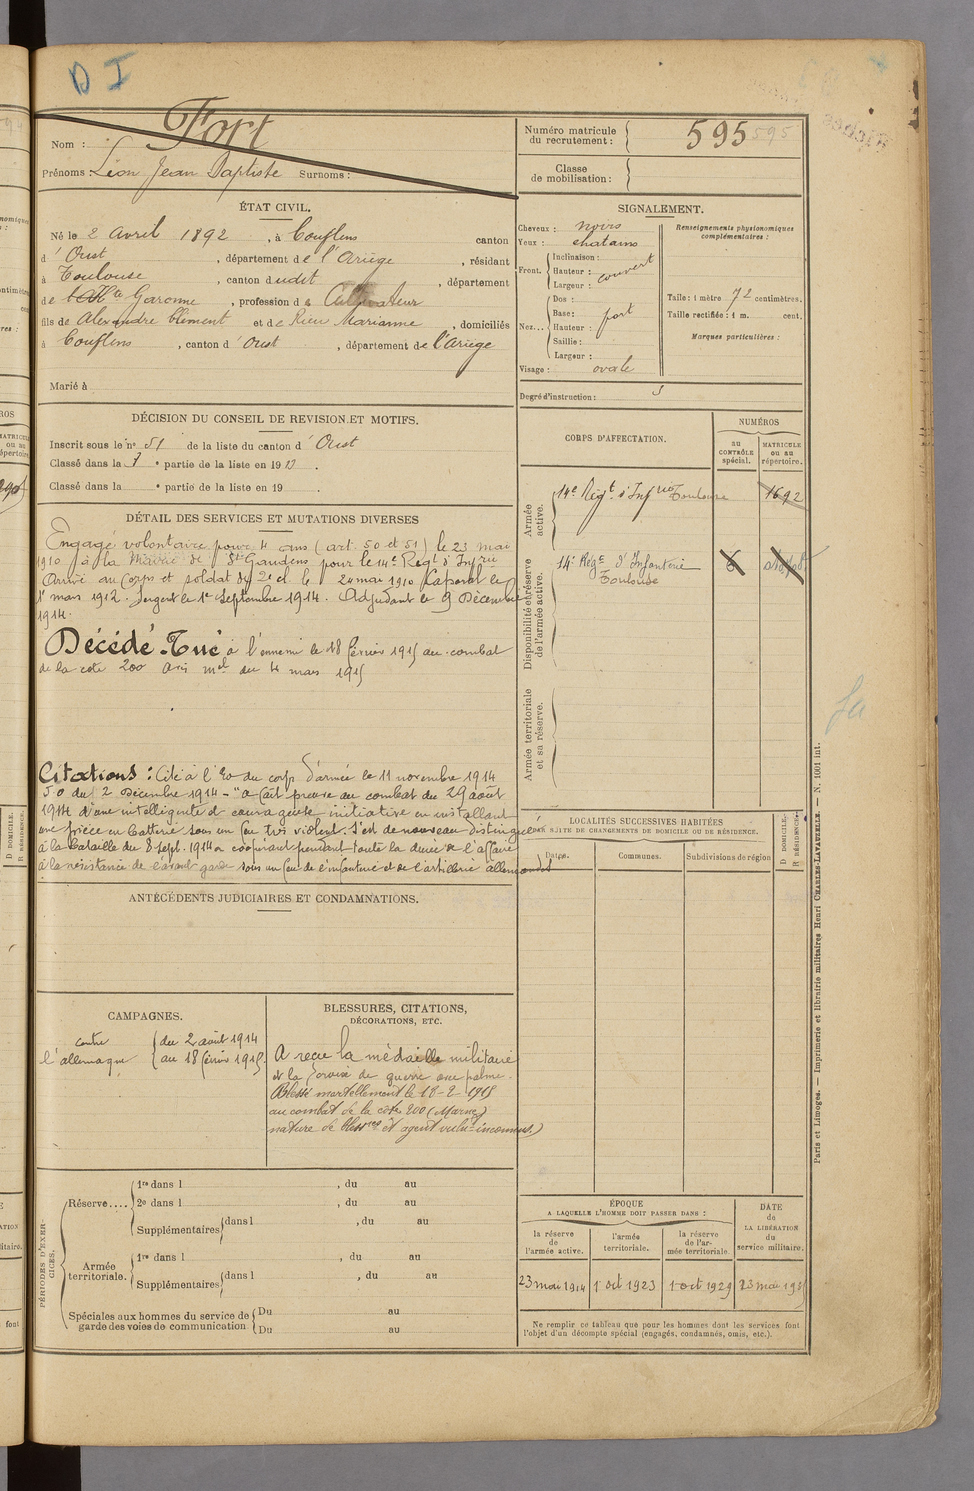 D I
Nom : Fort
Prénoms : Léon Jean Baptiste Surnoms :
Numéro matricule
du recrutement : 595
Classe
de mobilisation :
ÉTAT CIVIL.
Né le 2 Avril 1892, à Couflens canton
d'Oust, département de l'Ariège, résidant
à Toulouse, canton dudit, département
de la Hte Garonne, profession de Cultivateur
fils de Alexandre Clément et de Rieu Marianne, domiciliés
à Couflens, canton d'Oust, département de l'Ariège
Marié à
SIGNALEMENT.
Cheveux : noirs
Yeux : chatains
Front. Inclinaison :
Hauteur : couvert
Largeur :
Nez... Dos :
Base : fort
Hauteur :
Saillie :
Largeur :
Visage : ovale
Renseignements physionomiques
complémentaires :
Taille : 1 mètre 72 centimètres.
Taille rectifiée : 1 m. cent.
Marques particulières :
Degré d'instruction : 3
DÉCISION DU CONSEIL DE REVISION ET MOTIFS.
Inscrit sous le n° 51 de la liste du canton d'Oust
Classé dans la 3e partie de la liste en 1913.
Classé dans la e partie de la liste en 19 .
DÉTAIL DES SERVICES ET MUTATIONS DIVERSES
Engagé volontaire pour 4 ans (art. 50 et 51) le 23 mai
1910 à la Mairie de St Gaudens pour le 14e Regt d'Infrie
Arrivé au Corps et soldat de 2e cl. le 24 mai 1910 Caporal le
1er mars 1912. Sergent le 1er Septembre 1914. Adjudant le 9 Décembre
1914.
Décédé. Tué à l'ennemi le 18 février 1915 au combat
de la cote 200 avis mel du 4 mars 1915
Citations : Cité à l'ordre du corps d'armée le 11 novembre 1914
du 2 Décembre 1914 - "a fait preuve au combat du 29 août
1914 d'une intelligente et courageuse initiative en installant
une pièce en batterie sous un feu très violent. S'est de nouveau distingué
à la bataille du 8 sept. 1914 a coopérant pendant toute la durée de l'affaire
à la résistance de l'avant garde sous un feu de l'infanterie et de l'artillerie allemandes
CORPS D'AFFECTATION.
NUMÉROS
au
CONTRÔLE
spécial.
MATRICULE
ou au
répertoire.
Armée
active.
14e Regt d'Infrie Toulouse 1692
Disponibilité et réserve
de l'armée active.
14e Regt d'Infanterie
Toulouse
Armée territoriale
et sa réserve.
LOCALITÉS SUCCESSIVES HABITÉES
PAR SUITE DE CHANGEMENTS DE DOMICILE OU DE RÉSIDENCE.
Dates. Communes. Subdivisions de région
D DOMICILE.
R RÉSIDENCE.
ANTÉCÉDENTS JUDICIAIRES ET CONDAMNATIONS.
CAMPAGNES.
contre
l'allemagne
du 2 août 1914
au 18 février 1915
BLESSURES, CITATIONS,
DÉCORATIONS, ETC.
A reçu la médaille militaire
et la Croix de guerre avec palme.
Blessé mortellement le 18-2-1915
au combat de la cote 200 (Marne)
nature de blessres et agent vulnt inconnus)
PÉRIODES D'EXERCICES.
Réserve....
1re dans l , du au
2e dans l , du au
Supplémentaires dans l , du au
Armée
territoriale.
1re dans l , du au
Supplémentaires dans l , du au
Spéciales aux hommes du service de
garde des voies de communication
Du au
Du au
ÉPOQUE
A LAQUELLE L'HOMME DOIT PASSER DANS :
la réserve
de
l'armée active.
l'armée
territoriale.
la réserve
de l'ar-
mée territoriale.
DATE
de
LA LIBÉRATION
du
service militaire.
23 mai 1914 1 oct 1923 1 oct 1929 23 mai 193
Ne remplir ce tableau que pour les hommes dont les services font
l'objet d'un décompte spécial (engagés, condamnés, omis, etc.).
Paris et Limoges. — Imprimerie et librairie militaires Henri CHARLES-LAVAUZELLE. — N. 1001 int.